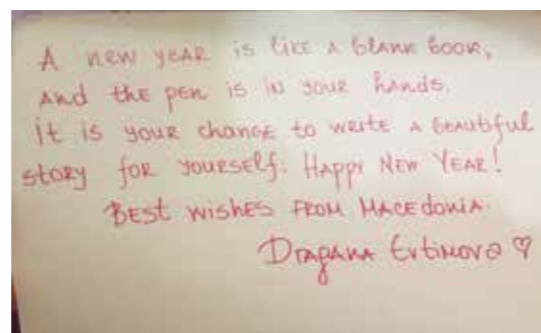 A new year is like a blank book,
and the pen is in your hands.
it is your change to write a beautiful
story for yourself. Happy New Year!
Best wishes from Macedonia.
Dragana Evtimova ♡